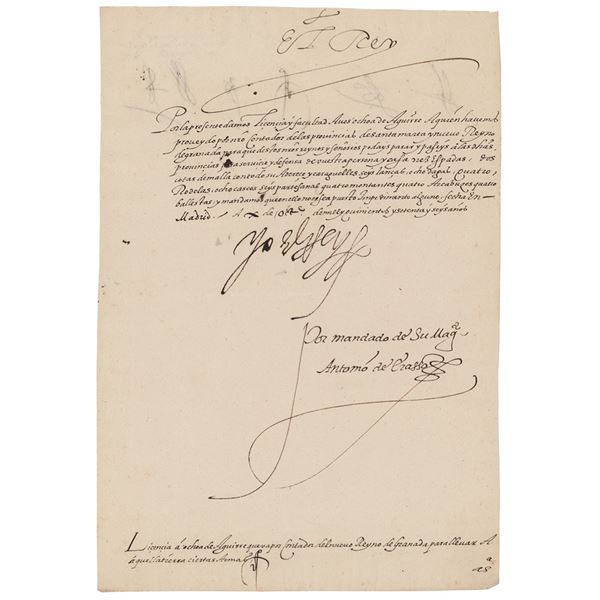 El Rey
Por la presente damos licencia y facultad A vos ochoa de Aguirre A quien havemos
proveydo por nro Contador de las provincias de santa marta y nuevo Reyno
de granada para que destos nros reynos y señorios podays passar y paseys a las dhas
provincias para servicio y defensa de vuestra persona y casa Espadas, dos
cotas de malla con todo su Adereço y çaragueles seys lanças, ocho dagas, quatro
Rodelas, ocho cascos seys partesanas quatro montantes quatro Arcabuces quatro
ballestas, y mandamos que en ello no vos sea puesto Impedimento alguno, fecha En
Madrid. A x de de mill y quinientos y setenta y seys años
Yo el Rey
Por mandado de Su Magd
Antonio de Erasso
Licencia á ochoa de Aguirre que va por Contador del nuevo Reyno de Granada para llevar A
aquella tierra ciertas Armas